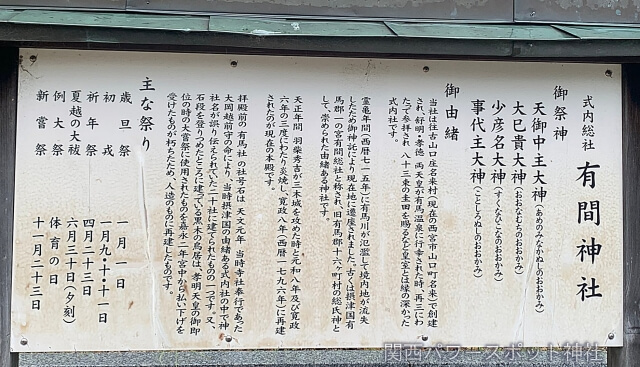 式内総社 有間神社
御祭神
天御中主大神（あめのみなかぬしのおおかみ）
大己貴大神（おおなむちのおおかみ）
少彦名大神（すくなひこなのおおかみ）
事代主大神（ことしろぬしのおおかみ）
御由緒
当社は往古山口庄名来村（現在の西宮市山口町名来）で創建
され、舒明・孝徳 両天皇が有馬温泉に行幸された時、再三にわ
たって参拝され、八十三束の圭田を賜るなど皇室とは縁の深かった
式内社です。
霊亀年間（西暦七一五年）に有馬川が氾濫して境内地が流失
したため御神託により現在地に遷座されました。古くは摂津国有
馬郡一の宮有間総社と称され、旧有馬郡十六ヶ町村の総氏神と
して、崇められた由緒ある神社です。
天正年間 羽柴秀吉が三木城を攻めた時と元和八年及び寛政
六年の三度にわたり炎焼し、寛政八年（西暦一七九六年）に再建
されたのが現在の本殿です。
拝殿前の「有馬社」の社号石は 天文元年 当時寺社奉行であった
大岡越前守の命により、当時摂津国の由緒ある式内社の中で神
社名が誤り伝えられていた二十社に建てられたものの一つです。又、
石段を登りつめたところに建っている黒木の鳥居は、孝明天皇の御即
位の時の大嘗祭に使用されたものを嘉永二年宮中から払い下げを
受けたものが朽ちたため、人造のものに再建したものです。
主な祭り
歳旦祭 一月一日
初戎 一月九・十・十一日
祈年祭 四月二十三日
夏越の大祓 六月三十日（夕刻）
例大祭 体育の日
新嘗祭 十一月二十三日
関西パワースポット神社